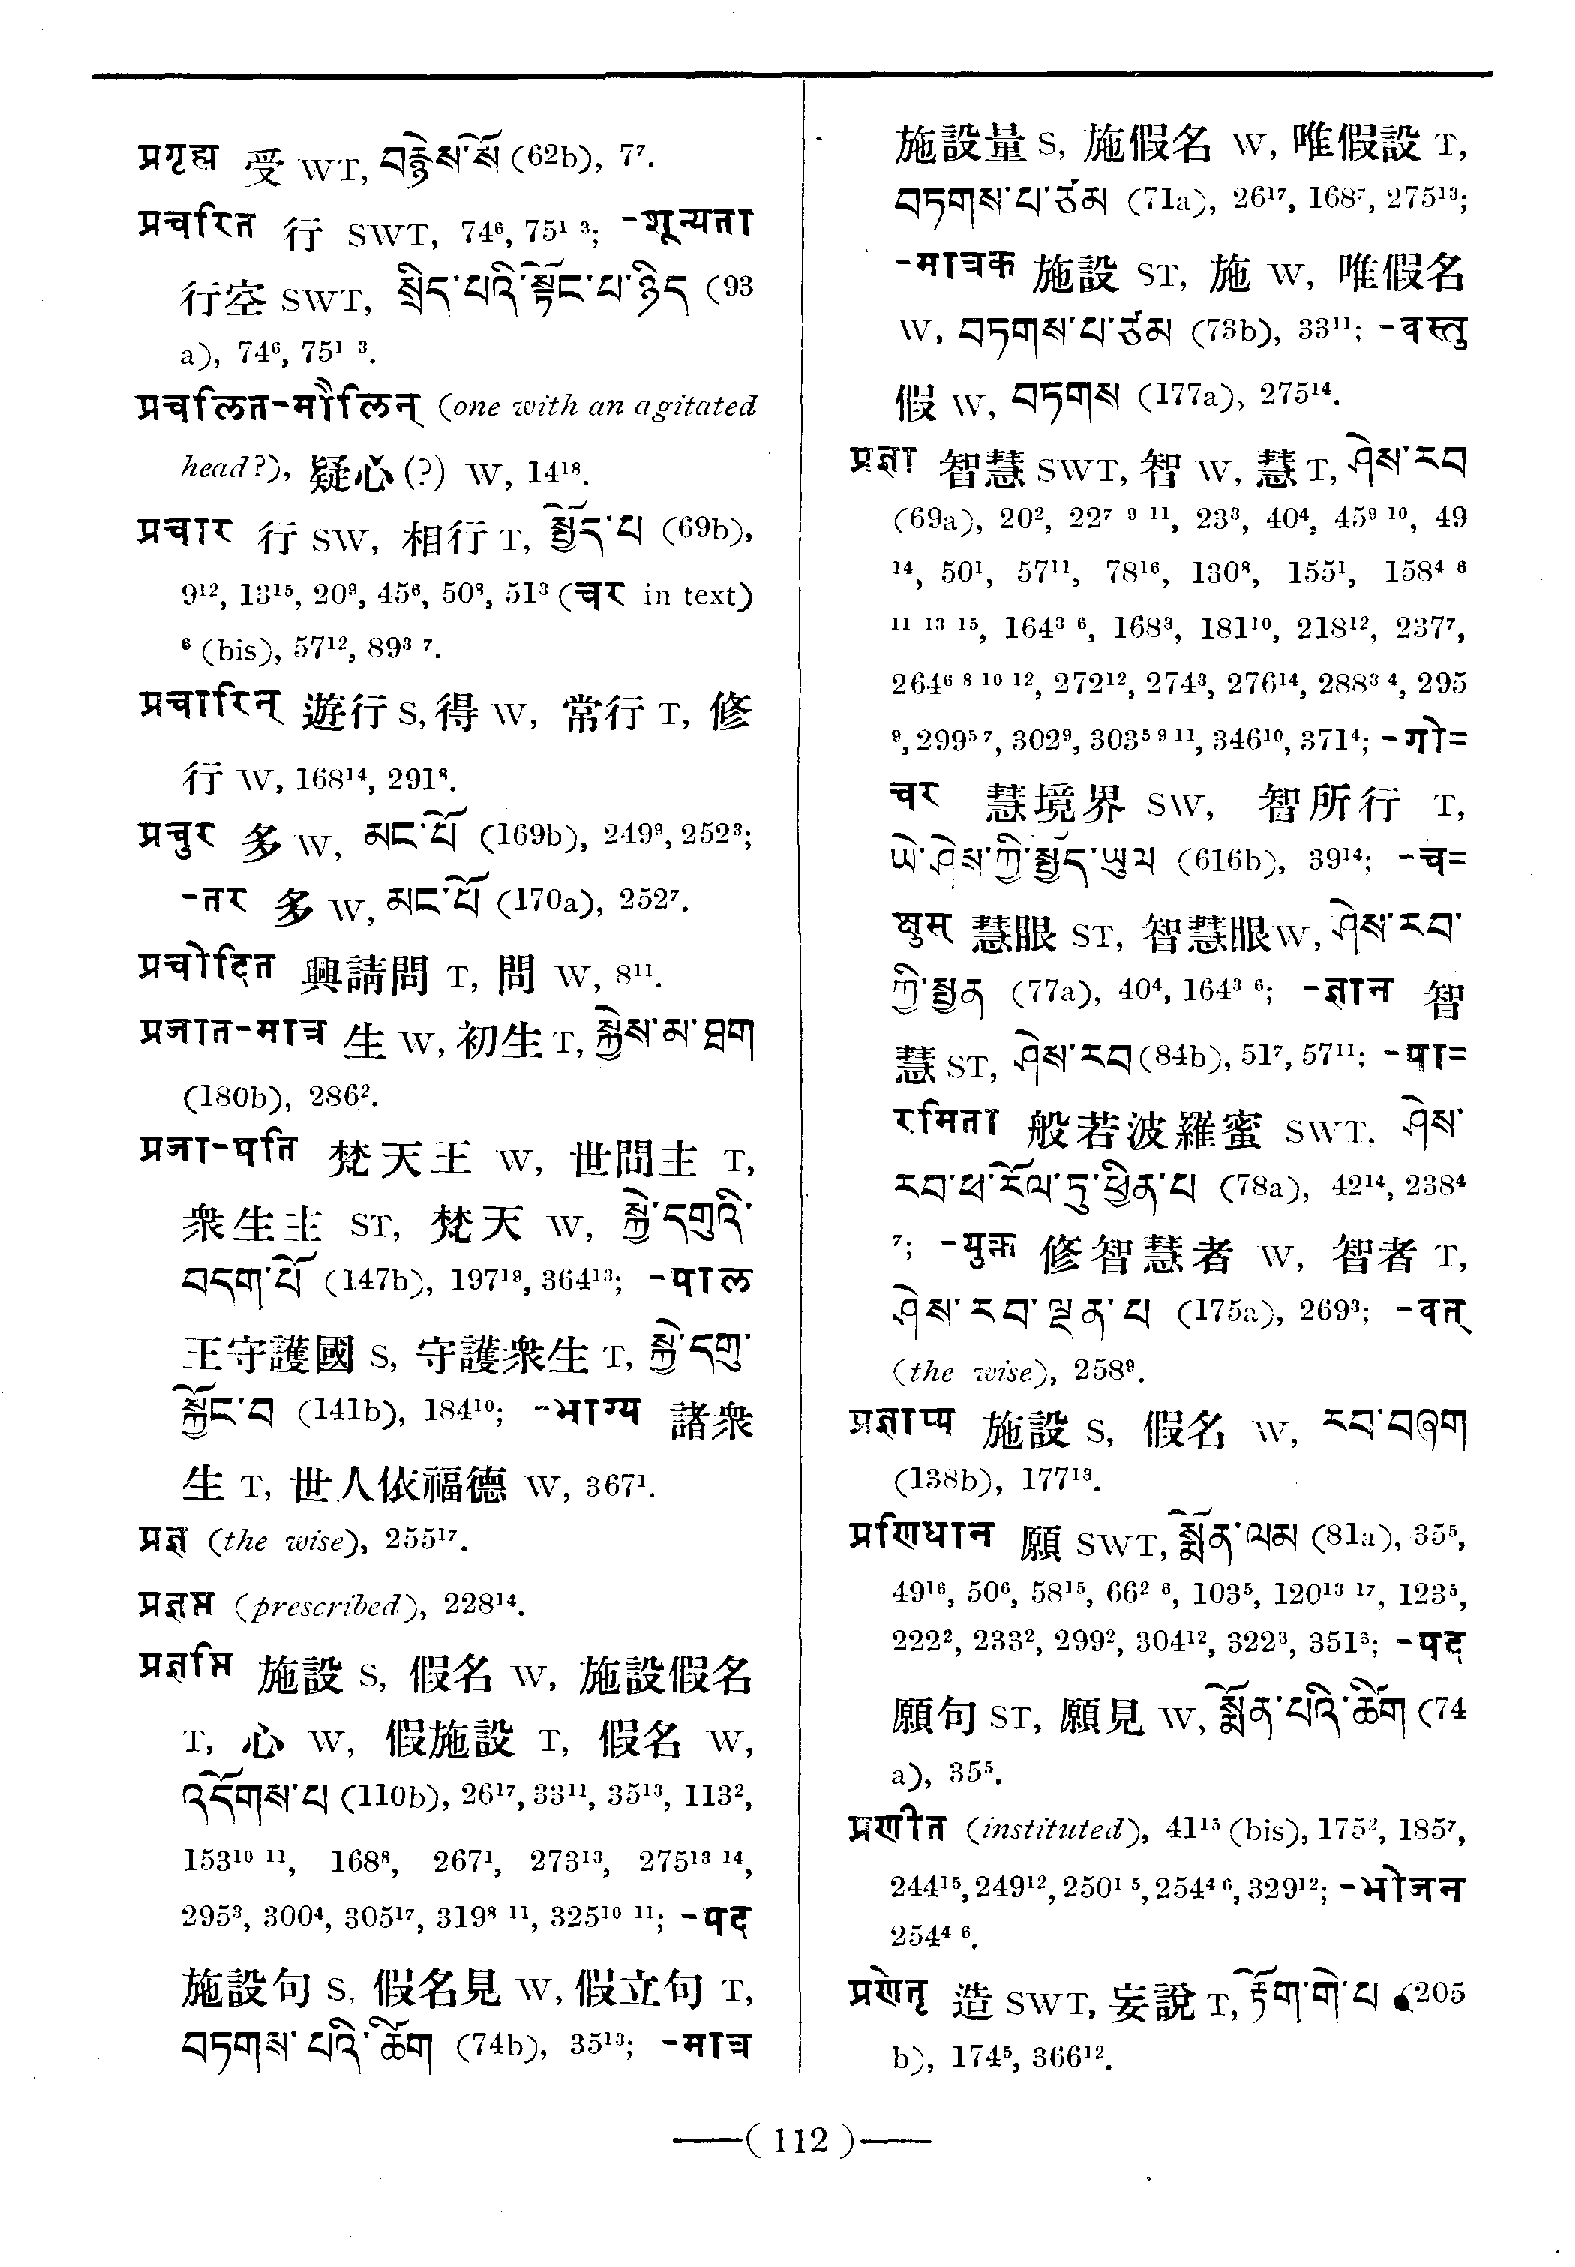 प्रगृह्म 受 WT, བརྙེས་སོ (62b), 7⁷.
प्रचरित 行 SWT, 74⁶, 75¹ ³; -शून्यता
行空 SWT, སྲིད་པའི་སྟོང་པ་ཉིད (93
a), 74⁶, 75¹ ³.
प्रचलित-मौलिन् (one with an agitated
head?), 疑心(?) W, 14¹⁸.
प्रचार 行 SW, 相行 T, སྤྱོད་པ (69b),
9¹², 13¹⁵, 20⁹, 45⁶, 50⁸, 51³ (चर in text)
⁶ (bis), 57¹², 89³ ⁷.
प्रचारिन् 遊行 S, 得 W, 常行 T, 修
行 W, 168¹⁴, 291⁸.
प्रचुर 多 W, མང་པོ (169b), 249⁹, 252³;
-तर 多 W, མང་པོ (170a), 252⁷.
प्रचोदित 興請問 T, 問 W, 8¹¹.
प्रजात-मात्र 生 W, 初生 T, སྐྱེས་མ་ཐག
(180b), 286².
प्रजा-पति 梵天王 W, 世間主 T,
衆生主 ST, 梵天 W, སྐྱེ་དགུའི་
བདག་པོ (147b), 197¹⁹, 364¹³; -पाल
王守護國 S, 守護衆生 T, སྐྱེ་དགུ་
སྐྱོང་བ (141b), 184¹⁰; -भाग्य 諸衆
生 T, 世人依福德 W, 367¹.
प्रज्ञ (the wise), 255¹⁷.
प्रज्ञप्त (prescribed), 228¹⁴.
प्रज्ञप्ति 施設 S, 假名 W, 施設假名
T, 心 W, 假施設 T, 假名 W,
འདོགས་པ (110b), 26¹⁷, 33¹¹, 35¹³, 113²,
153¹⁰ ¹¹, 168⁸, 267¹, 273¹³, 275¹³ ¹⁴,
295³, 300⁴, 305¹⁷, 319⁸ ¹¹, 325¹⁰ ¹¹; -पद
施設句 S, 假名見 W, 假立句 T,
བཏགས་པའི་ཚིག (74b), 35¹³; -मात्र
施設量 S, 施假名 W, 唯假設 T,
བཏགས་པ་ཙམ (71a), 26¹⁷, 168⁷, 275¹³;
-मात्रक 施設 ST, 施 W, 唯假名
W, བཏགས་པ་ཙམ (73b), 33¹¹; -वस्तु
假 W, བཏགས (177a), 275¹⁴.
प्रज्ञा 智慧 SWT, 智 W, 慧 T, ཤེས་རབ
(69a), 20², 22⁷ ⁹ ¹¹, 23³, 40⁴, 45⁹ ¹⁰, 49
¹⁴, 50¹, 57¹¹, 78¹⁶, 130⁸, 155¹, 158⁴ ⁶
¹¹ ¹³ ¹⁵, 164³ ⁶, 168³, 181¹⁰, 218¹², 237⁷,
264⁶ ⁸ ¹⁰ ¹², 272¹², 274³, 276¹⁴, 288³ ⁴, 295
⁹, 299⁵ ⁷, 302⁹, 303⁵ ⁹ ¹¹, 346¹⁰, 371⁴; -गो=
चर 慧境界 SW, 智所行 T,
ཡེ་ཤེས་ཀྱི་སྤྱོད་ཡུལ (616b), 39¹⁴; -च=
क्षुस् 慧眼 ST, 智慧眼 W, ཤེས་རབ་
ཀྱི་སྤྱན (77a), 40⁴, 164³ ⁶; -ज्ञान 智
慧 ST, ཤེས་རབ (84b), 51⁷, 57¹¹; -पा=
रमिता 般若波羅蜜 SWT. ཤེས་
རབ་ཕ་རོལ་ཏུ་ཕྱིན་པ (78a), 42¹⁴, 238⁴
⁷; -युक्त 修智慧者 W, 智者 T,
ཤེས་རབ་ལྡན་པ (175a), 269³; -वत्
(the wise), 258⁹.
प्रज्ञाप्य 施設 S, 假名 W, རབ་བཞག
(138b), 177¹³.
प्रणिधान 願 SWT, སྨོན་ལམ (81a), 35⁵,
49¹⁶, 50⁶, 58¹⁵, 66² ⁶, 103⁵, 120¹³ ¹⁷, 123⁵,
222², 233², 299², 304¹², 322³, 351⁵; -पद
願句 ST, 願見 W, སྨོན་པའི་ཚིག (74
a), 35⁵.
प्रणीत (instituted), 41¹⁵ (bis), 175², 185⁷,
244¹⁵, 249¹², 250¹ ⁵, 254⁴ ⁶, 329¹²; -भोजन
254⁴ ⁶.
प्रणेतृ 造 SWT, 妄說 T, རྟོག་གེ་པ (205
b), 174⁵, 366¹².
—( 112 )—